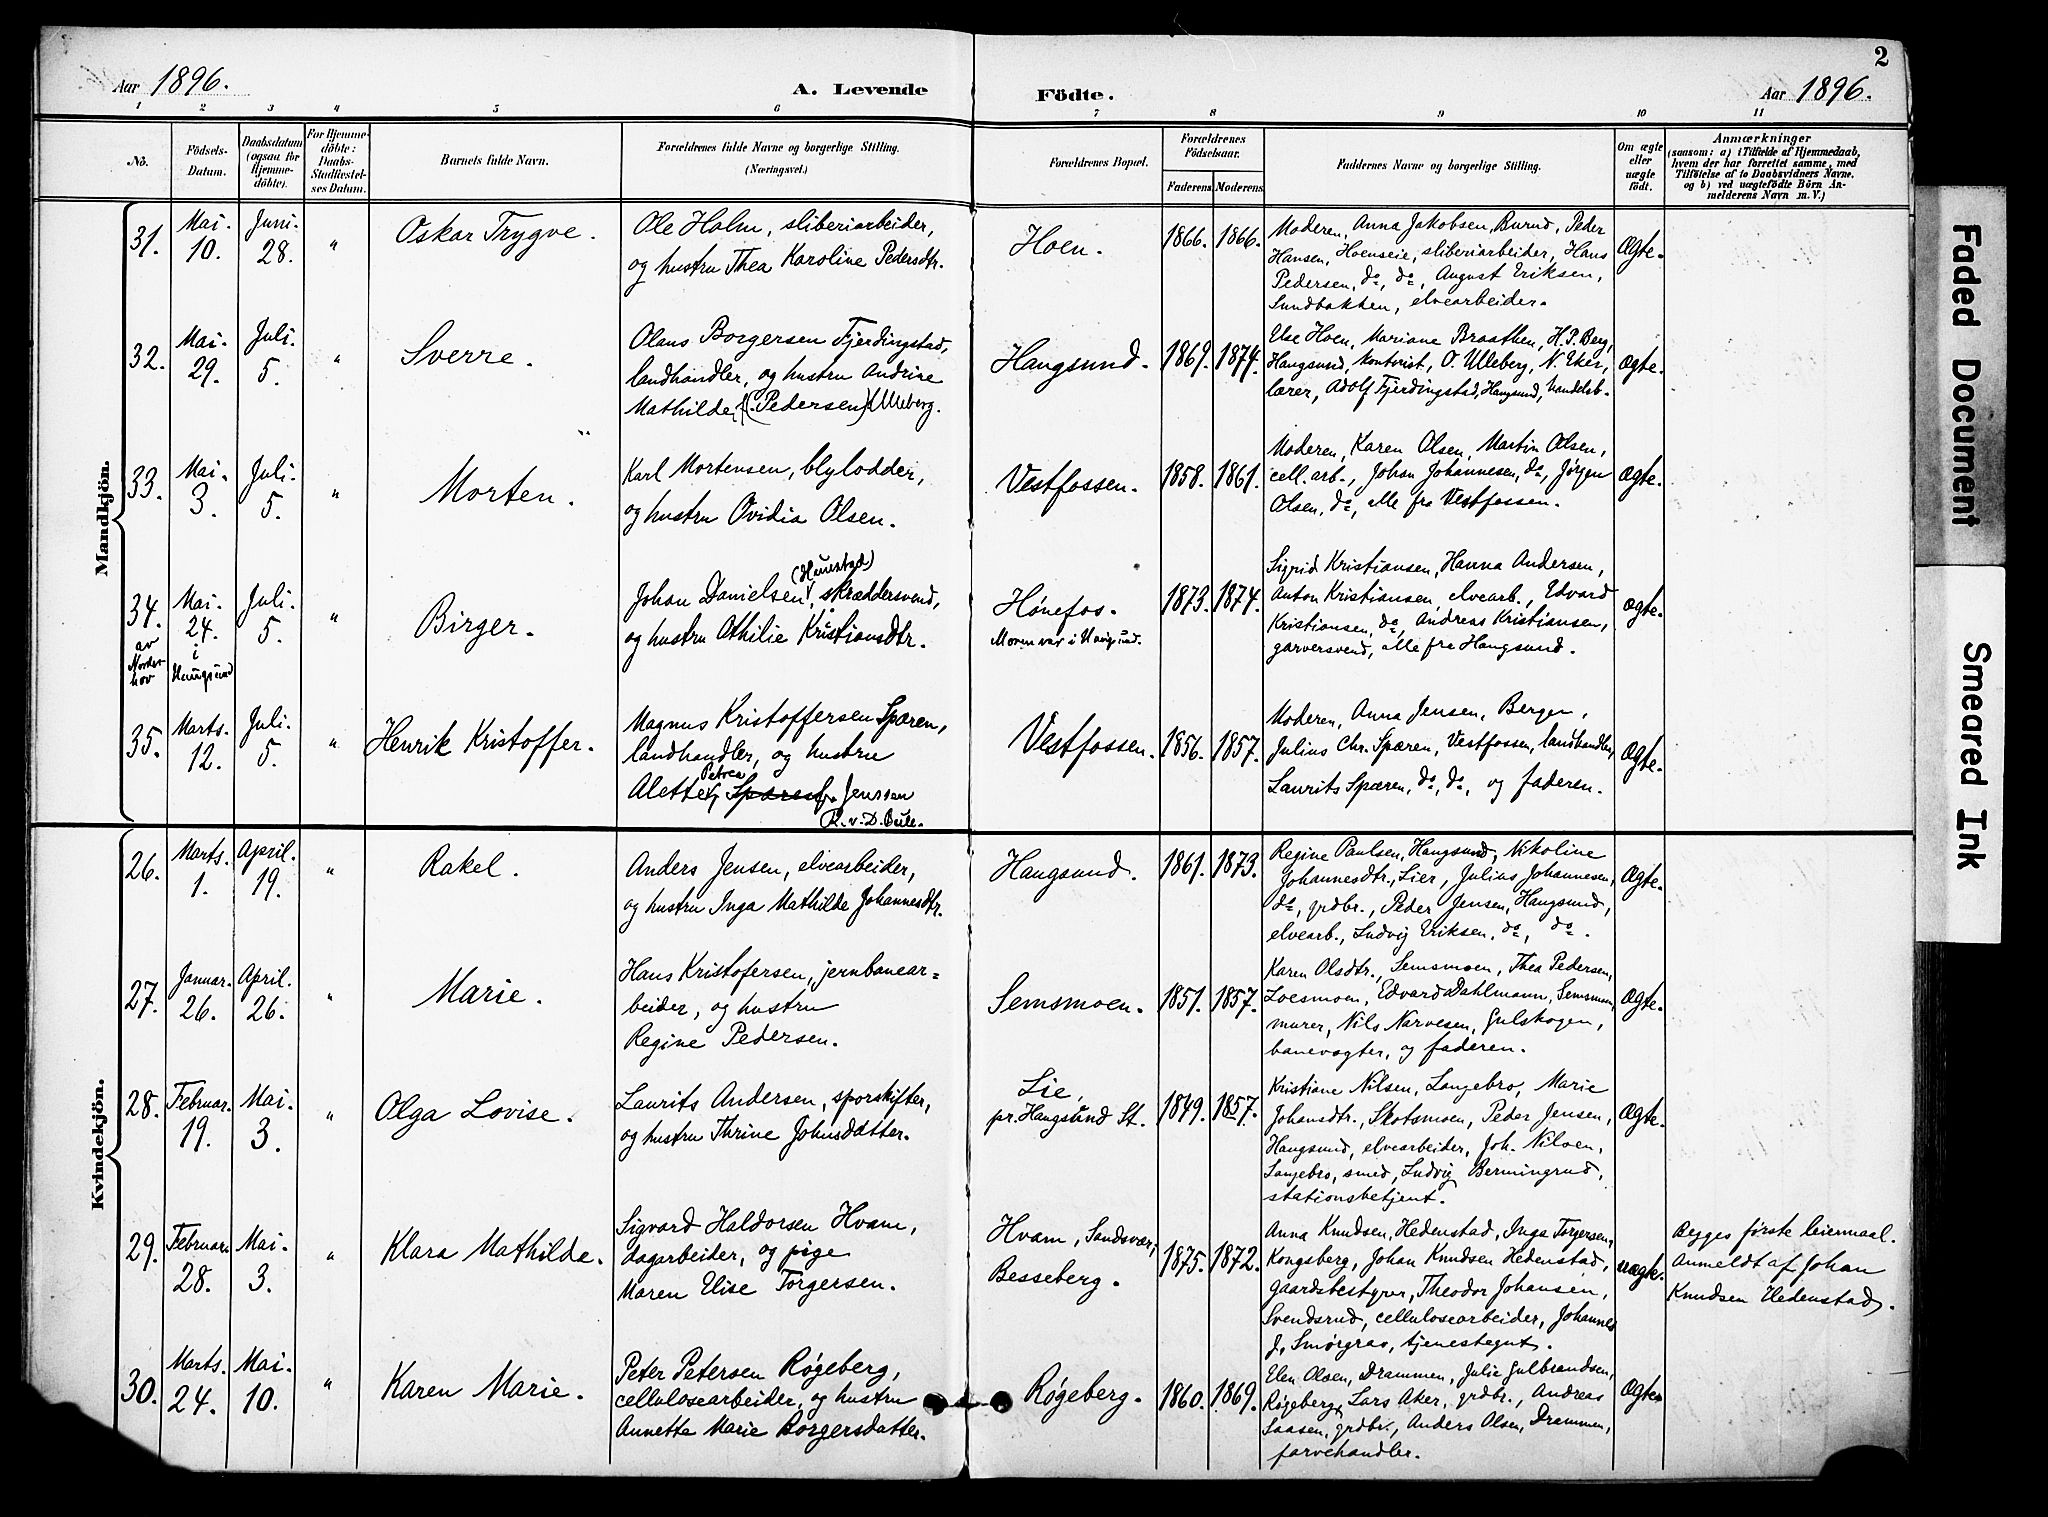 2
Aar 1896.
A. Levende Födte.
Aar 1896.
1 2 3 4 5 6 7 8 9 10 11
No.
Födsels-
Datum.
Daabsdatum
(ogsaa for
Hjemme-
döbte).
For Hjemme-
döbte:
Daabs-
Stadfæstel-
ses Datum.
Barnets fulde Navn.
Forældrenes fulde Navne og borgerlige Stilling.
(Næringsvei.)
Forældrenes Bopæl.
Forældrenes
Födselsaar.
Faderens
Moderens
Faddernes Navne og borgerlige Stilling.
Om ægte
eller
uægte
födt.
Anmærkninger
(saasom: a) i Tilfælde af Hjemmedaab,
hvem der har forrettet samme, med
Tilföielse af to Daabsvidners Navne.
og b) ved uægtefödte Börn An-
melderens Navn m. V.)
Mandkjön.
31.
Mai.
10.
Juni.
28.
"
Oskar Trygve.
Ole Holm, sliberiarbeider,
og hustru Thea Karoline Pedersdtr.
Hoen.
1866. 1866.
Moderen, Anna Jakobsen, Burud, Peder
Hansen, Hoenseie, sliberiarbeider, Hans
Pedersen, do, do, August Eriksen,
Sundbakken, elvearbeider.
Ægte.
32.
Mai.
29.
Juli.
5.
"
Sverre.
Olaus Borgersen Fjerdingstad,
landhandler, og hustru Andrine
Mathilde (Pedersen) Ulleberg.
Haugsund.
1869. 1874.
Else Hoen, Mariane Braathen, H. P. Berg,
Haugsund, kontorist, O. Ulleberg, N. Eker,
lærer, Adolf Fjerdingstad, Haugsund, handelsb.
Ægte.
33.
Mai.
3.
Juli.
5.
"
Morten.
Karl Mortensen, blylodder,
og hustru Ovidia Olsen.
Vestfossen.
1858. 1861.
Moderen, Karen Olsen, Martin Olsen,
cell. arb., Johan Johannesen, do, Jørgen
Olsen, do, alle fra Vestfossen.
Ægte.
34.
av
Norder-
hov
Mai.
24.
i
Haugsund
Juli.
5.
"
Birger.
(Haustad)
Johan Danielsen, skræddersvend,
og hustru Othilie Kristiansdtr.
Hønefos.
Moren var i Haugsund.
1873. 1874.
Sigrid Kristiansen, Hanna Andersen,
Anton Kristiansen, elvearb., Edvard
Kristiansen, do, Andreas Kristiansen,
garversvend, alle fra Haugsund.
Ægte.
35.
Marts.
12.
Juli.
5.
"
Henrik Kristoffer.
Magnus Kristoffersen Spæren,
landhandler, og hustru
Petrea
Alette, Spæren f. Jenssen
Vestfossen.
1856. 1857.
Moderen, Anna Jensen, Bergen,
Julius Chr. Spæren, Vestfossen, landhandler,
Laurits Spæren, do, do, og faderen.
Ægte.
Kvindekjön.
26.
Marts.
1.
April.
19.
"
Rakel.
Anders Jensen, elvearbeider,
og hustru Inga Mathilde Johannesdtr.
Haugsund.
1861. 1873.
Regine Paulsen, Haugsund, Nikoline
Johannesdtr., Lier, Julius Johannesen,
do, grdbr., Peder Jensen, Haugsund,
elvearb., Ludvig Eriksen, do, do.
Ægte.
27.
Januar.
26.
April.
26.
"
Marie.
Hans Kristofersen, jernbanear-
beider, og hustru
Regine Pedersen.
Semsmoen.
1851. 1857.
Karen Olsdtr., Semsmoen, Thea Pedersen,
Loesmoen, Edvard Dahlmann, Semsmoen,
murer, Nils Narvesen, Gulskogen,
banevogter, og faderen.
Ægte.
28.
Februar.
19.
Mai.
3.
"
Olga Lovise.
Laurits Andersen, sporskifter,
og hustru Thrine Johnsdatter.
Lie,
pr. Haugsund St.
1849. 1857.
Kristiane Nilsen, Langebro, Marie
Johansdtr., Skotsmoen, Peder Jensen,
Haugsund, elvearbeider, Joh. Nilsen,
Langebro, smed, Ludvig Bermingrud,
stationsbetjent.
Ægte.
29.
Februar.
28.
Mai.
3.
"
Klara Mathilde.
Sigvard Haldorsen Hvam,
dagarbeider, og pige
Maren Elise Torgersen.
Hvam, Sandsvær,
Besseberg.
1875. 1872.
Anna Knudsen, Hedenstad, Inga Torgersen,
Kongsberg, Johan Knudsen Hedenstad,
gaardsbestyrer, Theodor Johansen,
Svendsrud, cellulosearbeider, Johannes
J. Smørgrav, tjenestegut.
uægte.
Begges første leiermaal.
Anmeldt af Johan
Knudsen Hedenstad.
30.
Marts.
24.
Mai.
10.
"
Karen Marie.
Peter Petersen Røgeberg,
cellulosearbeider, og hustru
Annette Marie Borgersdatter.
Røgeberg.
1860. 1869.
Elen Olsen, Drammen, Julie Gulbrandsen,
Røgeberg, Lars Aker, grdbr., Andreas
Saasen, grdbr., Anders Olsen, Drammen,
farvehandler.
Ægte.
Faded Document
Smeared Ink